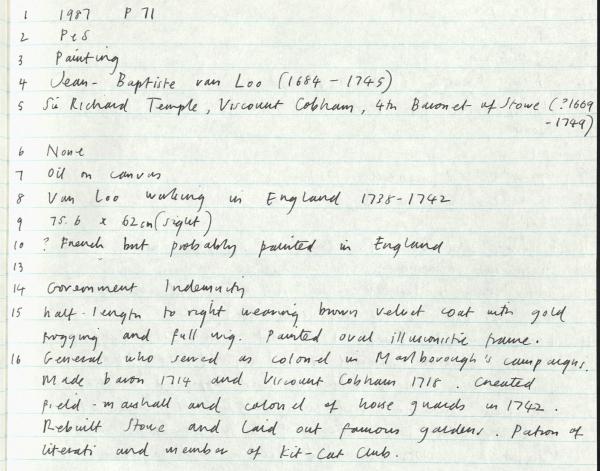 1 1987 P 71
2 P & S
3 Painting
4 Jean-Baptiste van Loo (1684 - 1745)
5 Sir Richard Temple, Viscount Cobham, 4th Baronet of Stowe (?1669
- 1749)
6 None
7 Oil on canvas
8 Van Loo working in England 1738-1742
9 75.6 x 62cm (sight)
10 ? French but probably painted in England
13
14 Government Indemnity
15 half-length to right wearing brown velvet coat with gold
frogging and full wig. Painted oval illusionistic frame.
16 General who served as colonel in Marlborough's campaigns.
Made baron 1714 and Viscount Cobham 1718. Created
field-marshall and colonel of horse guards in 1742.
Rebuilt Stowe and laid out famous gardens. Patron of
literati and member of Kit-Cat Club.